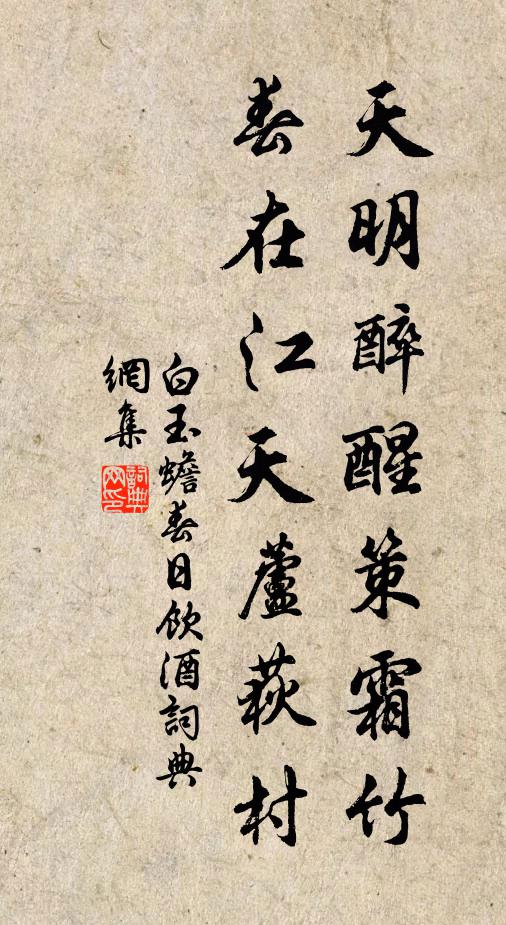 天明醉醒策霜竹
春在江天蘆荻村
白玉蟾春日飲酒詞典
網集
詞典
網印